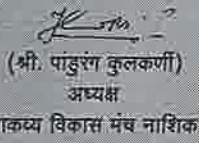 (श्री. पांडुरंग कुलकर्णी)
अध्यक्ष
विकास मंच नाशिक